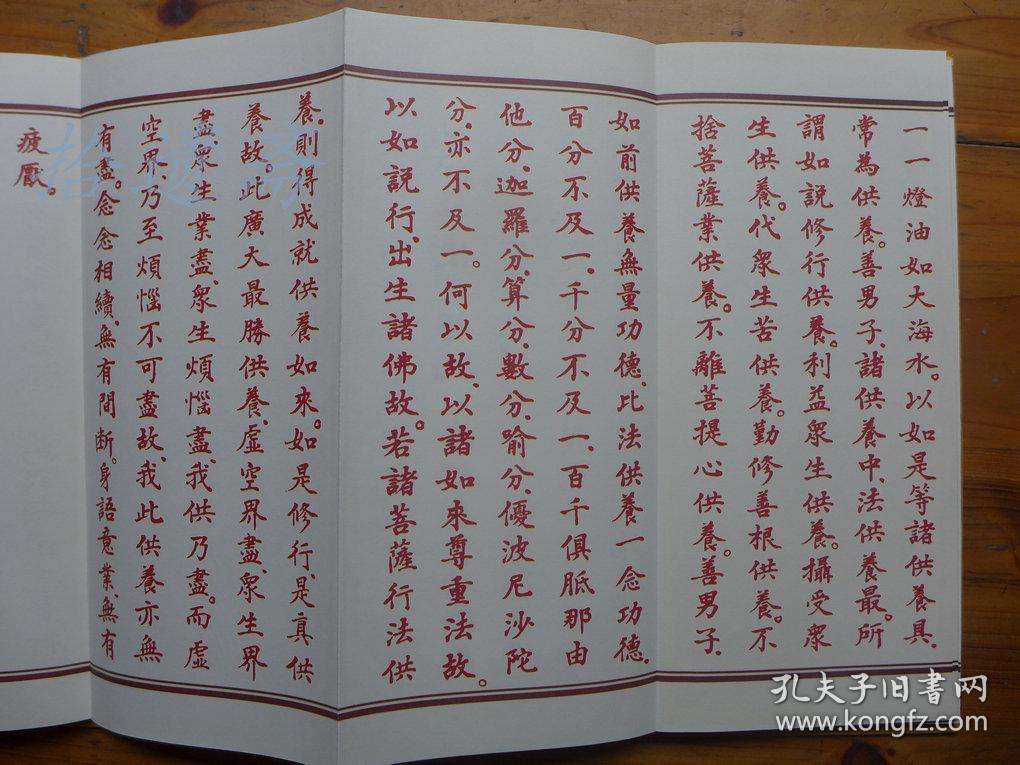 一一燈油如大海水。以如是等諸供養具、
常為供養。善男子、諸供養中、法供養最。所
謂如説修行供養。利益眾生供養。攝受眾
生供養。代眾生苦供養。勤修善根供養。不
捨菩薩業供養。不離菩提心供養。善男子、
如前供養無量功德、比法供養一念功德、
百分不及一、千分不及一、百千俱胝那由
他分、迦羅分、算分、數分、喻分、優波尼沙陀
分、亦不及一。何以故、以諸如來尊重法故。
以如説行、出生諸佛故。若諸菩薩行法供
養、則得成就供養如來。如是修行、是真供
養故。此廣大最勝供養、虛空界盡、眾生界
盡、眾生業盡、眾生煩惱盡、我供乃盡。而虛
空界、乃至煩惱不可盡故、我此供養亦無
有盡。念念相續、無有間斷。身語意業、無有
疲厭。
孔夫子旧書网
www.kongfz.com